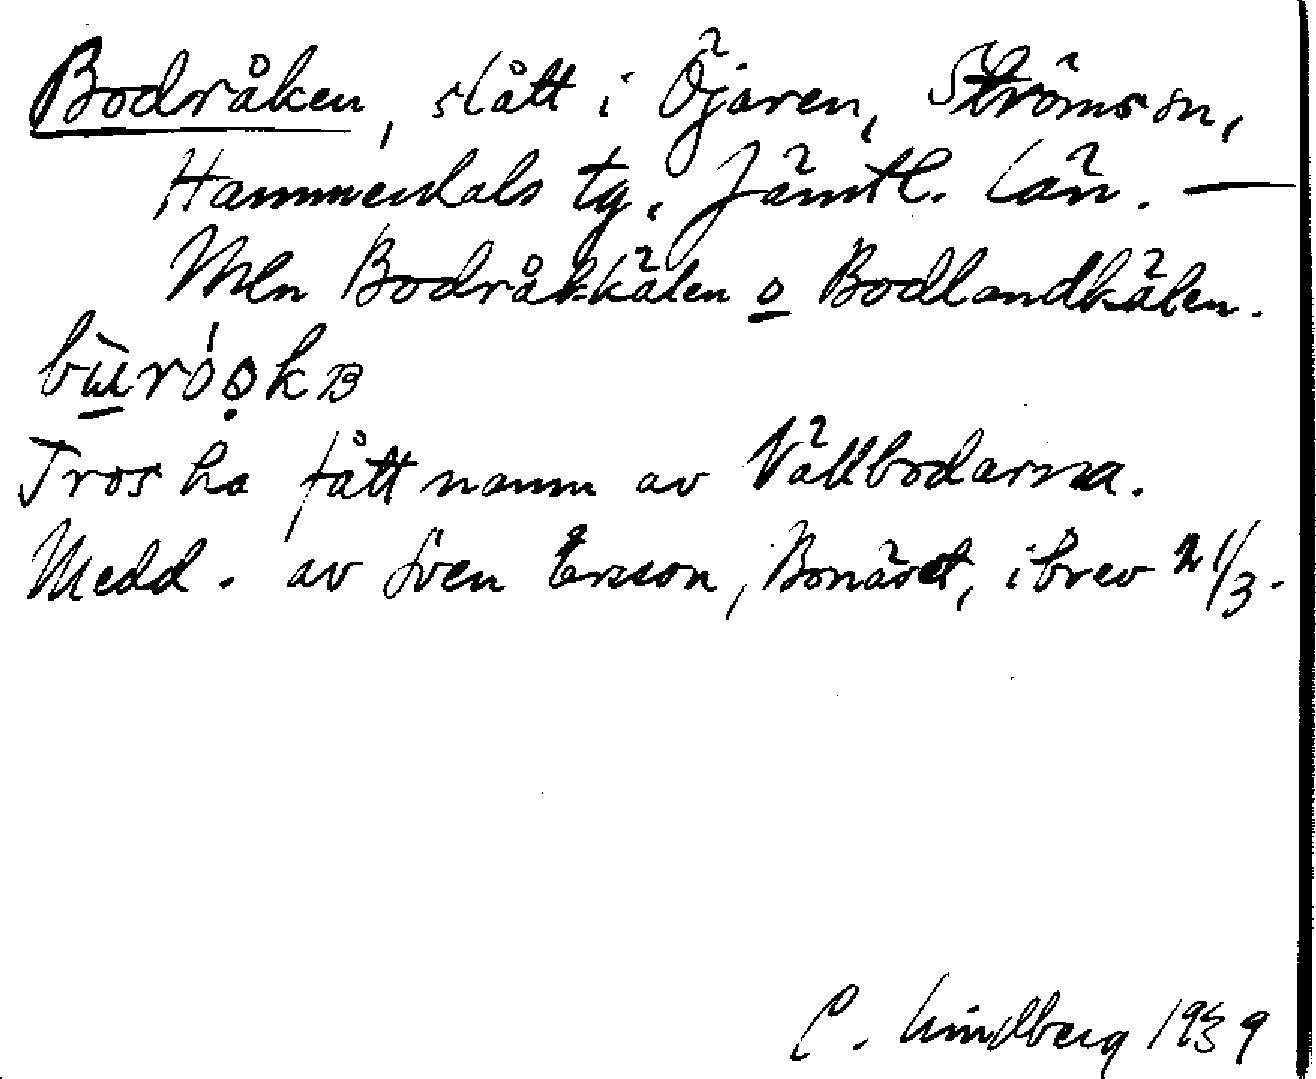 Bodråken, slått i Öjaren, Ströms sn,
Hammerdals tg, Jämtl. län. —
Mln Bodråkkälen o Bodlandkälen.
Tros ha fått namn av Vållbodarna.
Medd. av Sven Ersson, Bonäset, i brev 21/3.
C. Lindberg 1939